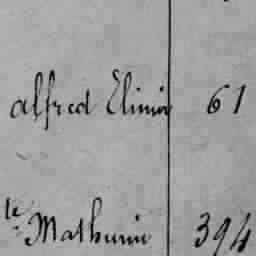 alfred Elinie 61
te Mathurin 394